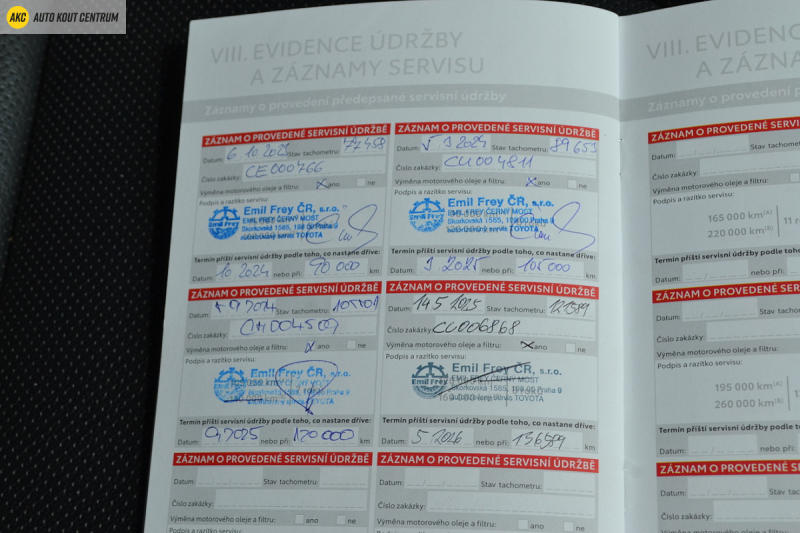 AKC AUTO KOUT CENTRUM
VIII. EVIDENCE ÚDRŽBY
A ZÁZNAMY SERVISU
Záznamy o provedení předepsané servisní údržby
ZÁZNAM O PROVEDENÉ SERVISNÍ ÚDRŽBĚ
Datum: 6 10 2023 Stav tachometru: 77458
Číslo zakázky: CE000766
Výměna motorového oleje a filtru: X ano ne
Podpis a razítko servisu:
Emil Frey ČR, s.r.o.
EMIL FREY ČERNÝ MOST
Skorkovská 1585, 198 00 Praha 9
autorizovaný servis TOYOTA
Termín příští servisní údržby podle toho, co nastane dříve:
10 2024 nebo při: 90 000 km
ZÁZNAM O PROVEDENÉ SERVISNÍ ÚDRŽBĚ
Datum: 3 2024 Stav tachometru: 89653
Číslo zakázky: CU004811
Výměna motorového oleje a filtru: X ano ne
Podpis a razítko servisu:
Emil Frey ČR, s.r.o.
EMIL FREY ČERNÝ MOST
Skorkovská 1585, 198 00 Praha 9
autorizovaný servis TOYOTA
Termín příští servisní údržby podle toho, co nastane dříve:
3 2025 nebo při: 105000 km
ZÁZNAM O PROVEDENÉ SERVISNÍ ÚDRŽBĚ
Datum: 9 2024 Stav tachometru:
Číslo zakázky:
Výměna motorového oleje a filtru: X ano ne
Podpis a razítko servisu:
Emil Frey ČR, s.r.o.
EMIL FREY ČERNÝ MOST
Skorkovská 1585, 198 00 Praha 9
autorizovaný servis TOYOTA
Termín příští servisní údržby podle toho, co nastane dříve:
9 2025 nebo při: 120000 km
ZÁZNAM O PROVEDENÉ SERVISNÍ ÚDRŽBĚ
Datum: 14 5 2025 Stav tachometru: 121589
Číslo zakázky: CU006868
Výměna motorového oleje a filtru: X ano ne
Podpis a razítko servisu:
Emil Frey ČR, s.r.o.
EMIL FREY ČERNÝ MOST
Skorkovská 1585, 198 00 Praha 9
autorizovaný servis TOYOTA
Termín příští servisní údržby podle toho, co nastane dříve:
5 2026 nebo při: 136589 km
ZÁZNAM O PROVEDENÉ SERVISNÍ ÚDRŽBĚ
Datum: Stav tachometru:
Číslo zakázky:
Výměna motorového oleje a filtru: ano ne
Podpis a razítko servisu:
ZÁZNAM O PROVEDENÉ SERVISNÍ ÚDRŽBĚ
Datum: Stav tachometru:
Číslo zakázky:
Výměna motorového oleje a filtru: ano ne
Podpis a razítko servisu:
VIII. EVIDENCE
A ZÁZNA
Záznamy o provedení
ZÁZNAM O PROVEDENÉ SER
Datum:
Číslo zakázky:
Výměna motorového oleje a filtru:
Podpis a razítko servisu:
165 000 km(A)
220 000 km(B)
Termín příští servisní údržby
Datum: nebo při
ZÁZNAM O PROVEDENÉ SE
Datum: St
Číslo zakázky:
Výměna motorového oleje a filtru:
Podpis a razítko servisu:
195 000 km(A)
260 000 km(B)
Termín příští servisní údržby po
Datum: nebo při
ZÁZNAM O PROVEDENÉ
Datum:
Číslo zakázky:
Výměna motorového oleje a f